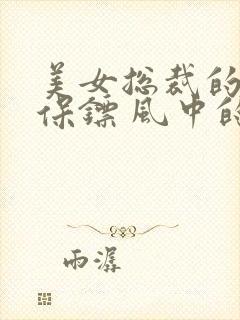 美女总裁的
保镖风中的
雨潺